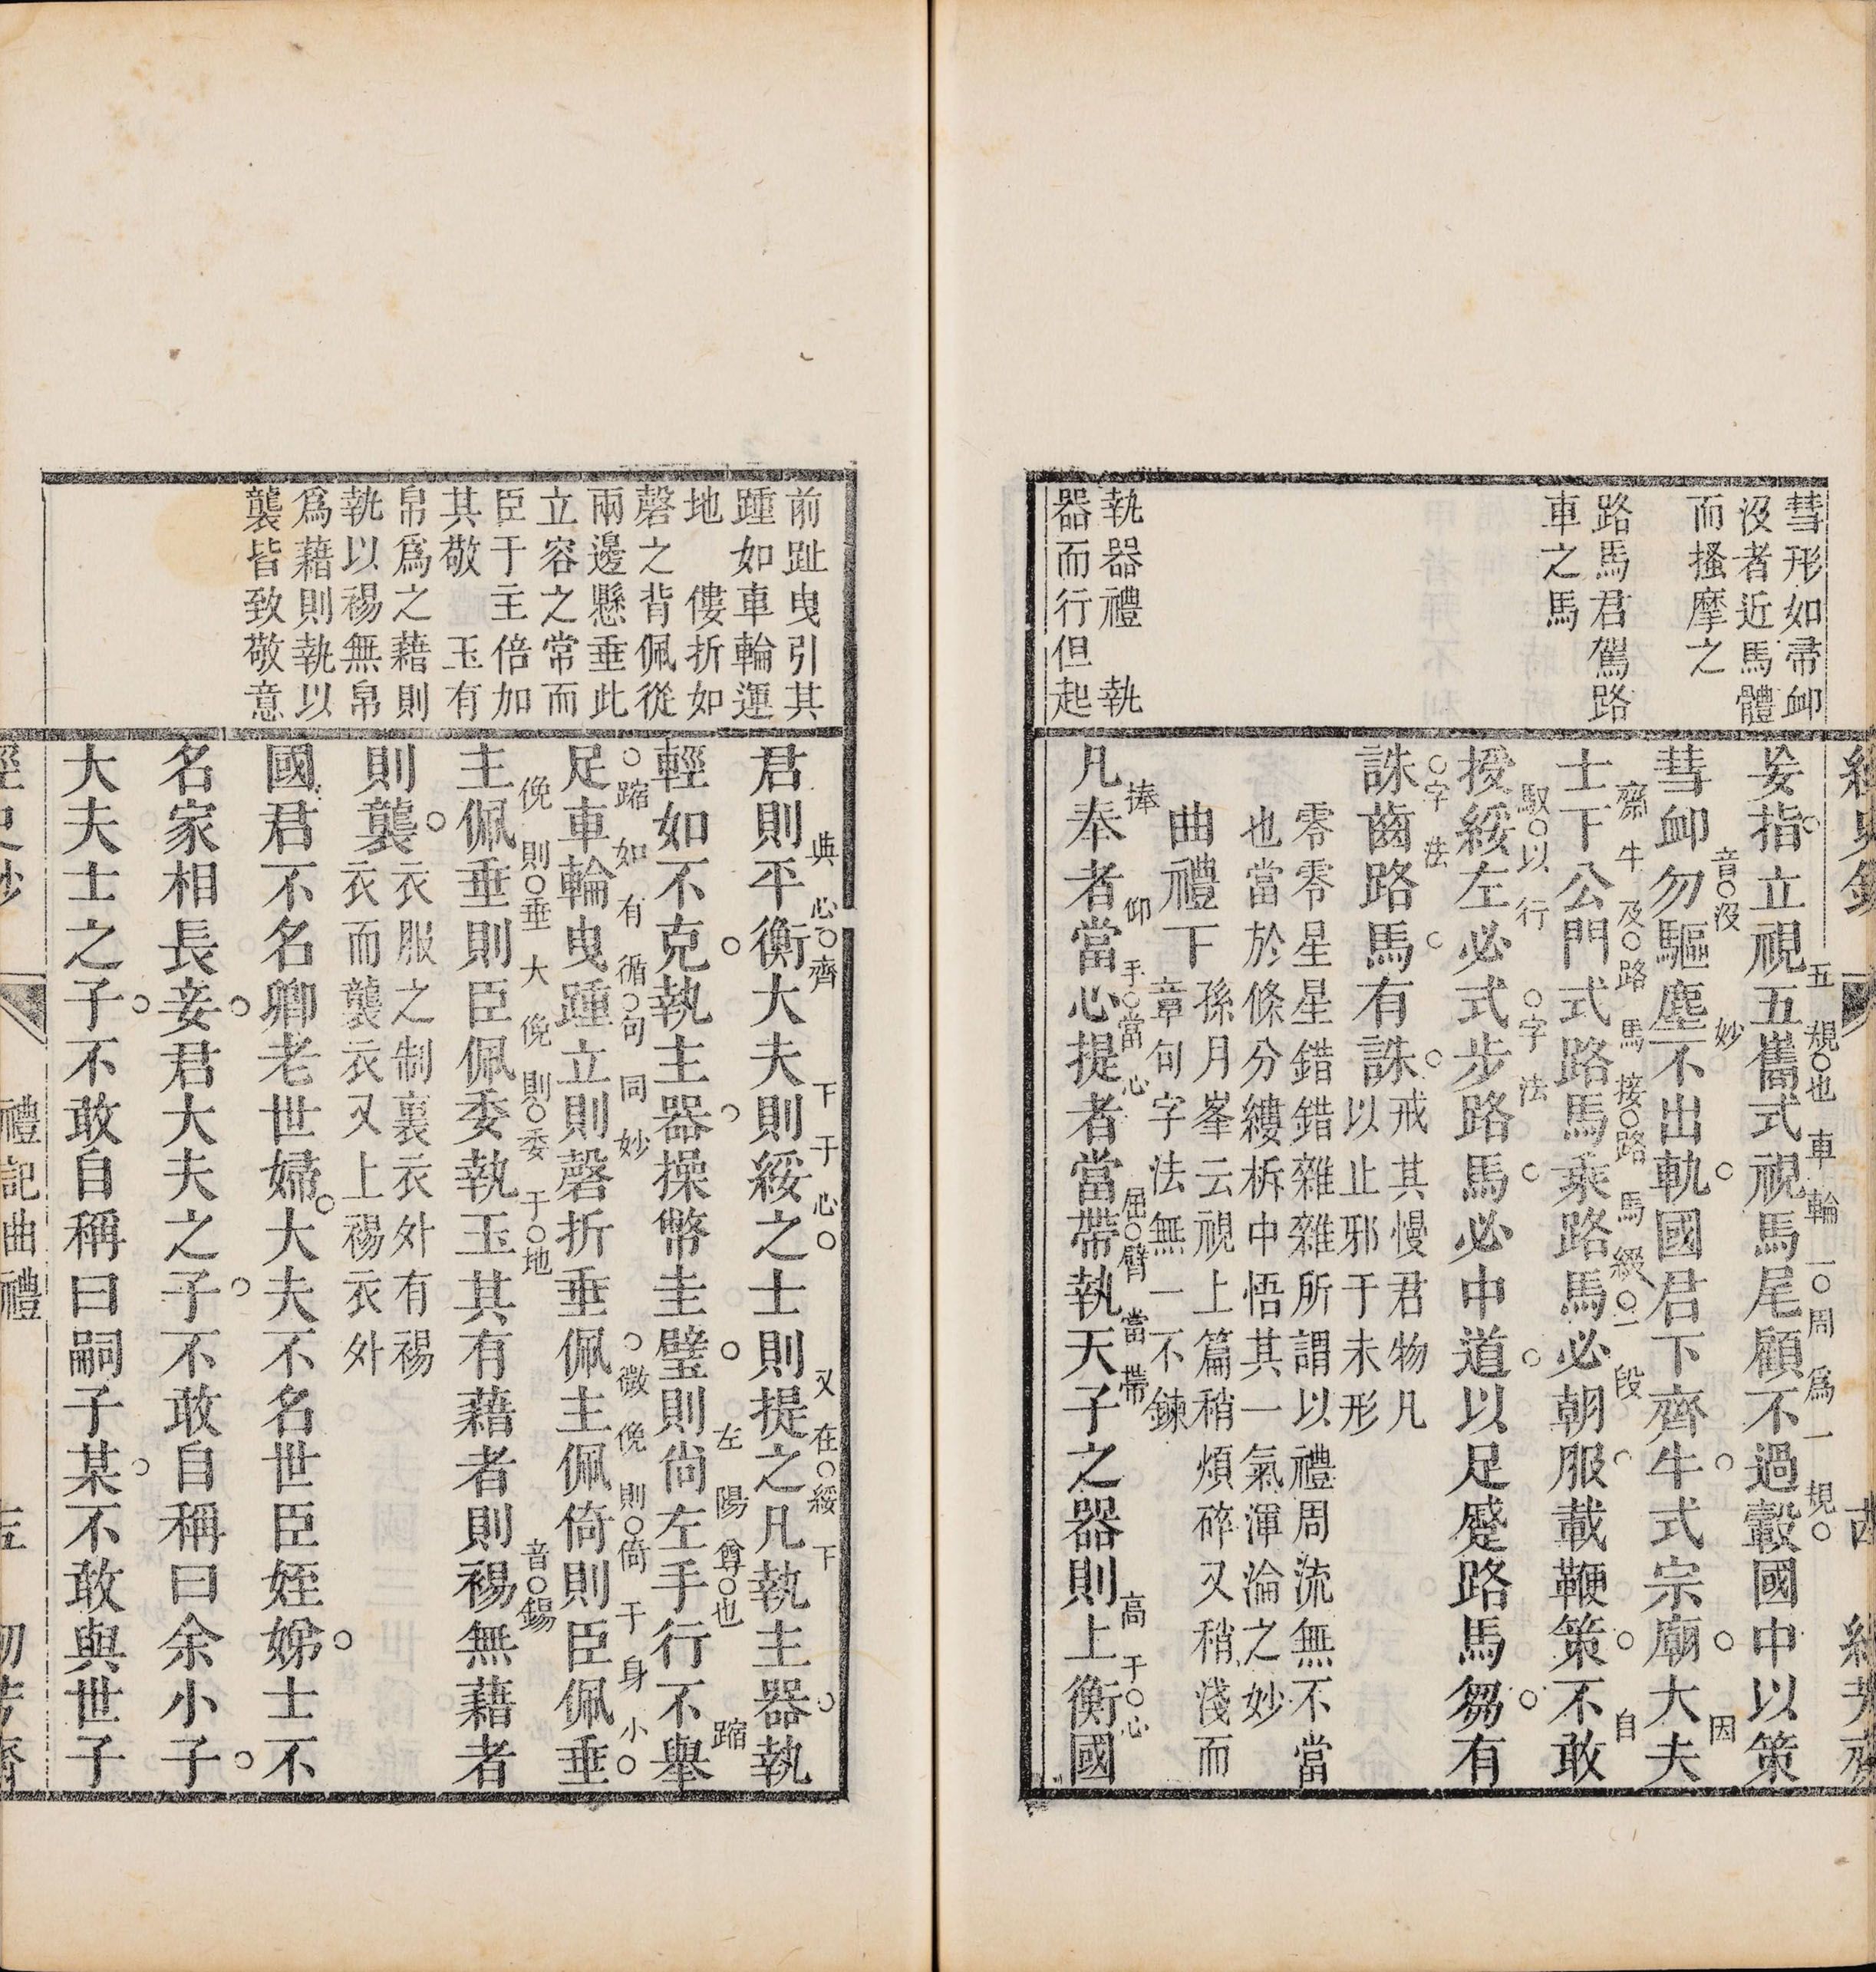 彗形如帚卹
沒者近馬體
而搔摩之
路馬君駕路
車之馬
執器禮　執
器而行但起
五規〇也車輪一〇周爲一規〇
妄指立視五雟式視馬尾顧不過轂國中以策
音〇沒　妙　因
彗卹勿驅塵不出軌國君下齊牛式宗廟大夫
齋牛及〇路馬接〇路馬綴〇一段　自
士下公門式路馬乘路馬必朝服載鞭策不敢
馭〇以行　〇字法
授綏左必式步路馬必中道以足蹙路馬芻有
〇字法
誅齒路馬有誅
戒其慢君物凡
以止邪于未形
零零星星錯錯雜雜所謂以禮周流無不當
也當於條分縷柝中悟其一氣渾淪之妙
曲禮下
孫月峯云視上篇稍煩碎又稍淺而
章句字法無一不鍊
捧　仰手〇當心　屈〇臂當帶　高于〇心
凡奉者當心提者當帶執天子之器則上衡國
前趾曳引其
踵如車輪運
地　僂折如
磬之背佩從
兩邊懸垂此
立容之常而
臣于主倍加
其敬　玉有
帛爲之藉則
執以裼無帛
爲藉則執以
襲皆致敬意
與心〇齊　下于心〇　又在〇綏下
君則平衡大夫則綏之士則提之凡執主器執
左陽尊〇也　蹜
輕如不克執主器操幣圭璧則尚左手行不舉
〇蹜如有循〇句同妙　〇微俛則〇倚于身小〇
足車輪曳踵立則磬折垂佩主佩倚則臣佩垂
俛則〇垂　大俛則〇委于〇地　音〇錫
主佩垂則臣佩委執玉其有藉者則裼無藉者
則襲
衣服之制裏衣外有裼
衣而襲衣又上裼衣外
國君不名卿老世婦大夫不名世臣姪娣士不
名家相長妾君大夫之子不敢自稱曰余小子
大夫士之子不敢自稱曰嗣子某不敢與世子
禮記曲禮